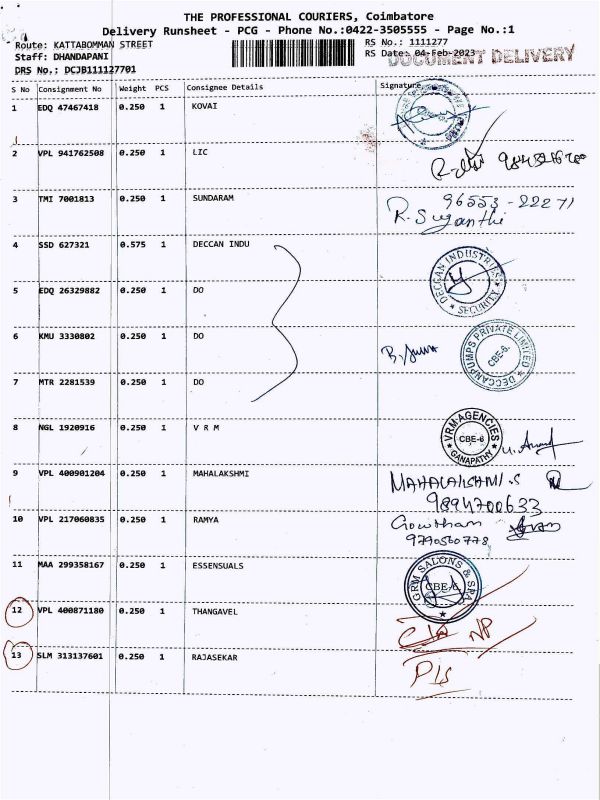 THE PROFESSIONAL COURIERS, Coimbatore
Delivery Runsheet - PCG - Phone No.:0422-3505555 - Page No.:1
Route: KATTABOMMAN STREET
RS No.: 1111277
Staff: DHANDAPANI
RS Date: 04-Feb-2023
DOCUMENT DELIVERY
DRS No.: DCJB111127701
S No Consignment No Weight PCS Consignee Details Signature
1 EDQ 47467418 0.250 1 KOVAI
2 VPL 941762508 0.250 1 LIC
3 TMI 7001813 0.250 1 SUNDARAM 96553-22271
R. Suganthi
4 SSD 627321 0.575 1 DECCAN INDU
DECCAN INDUSTRIES
SECURITY
5 EDQ 26329882 0.250 1 DO
6 KMU 3330802 0.250 1 DO
DECCANPUMPS PRIVATE LIMITED
CBE-6.
7 MTR 2281539 0.250 1 DO
8 NGL 1920916 0.250 1 V R M
VRM AGENCIES
CBE-6
GANAPATHY
9 VPL 400901204 0.250 1 MAHALAKSHMI MAHALAKSHMI.S
9894700633
10 VPL 217060835 0.250 1 RAMYA Gowtham
9790560778
11 MAA 299358167 0.250 1 ESSENSUALS
GRM SALONS & SPA
CBE-6
12 VPL 400871180 0.250 1 THANGAVEL
NP
13 SLM 313137601 0.250 1 RAJASEKAR